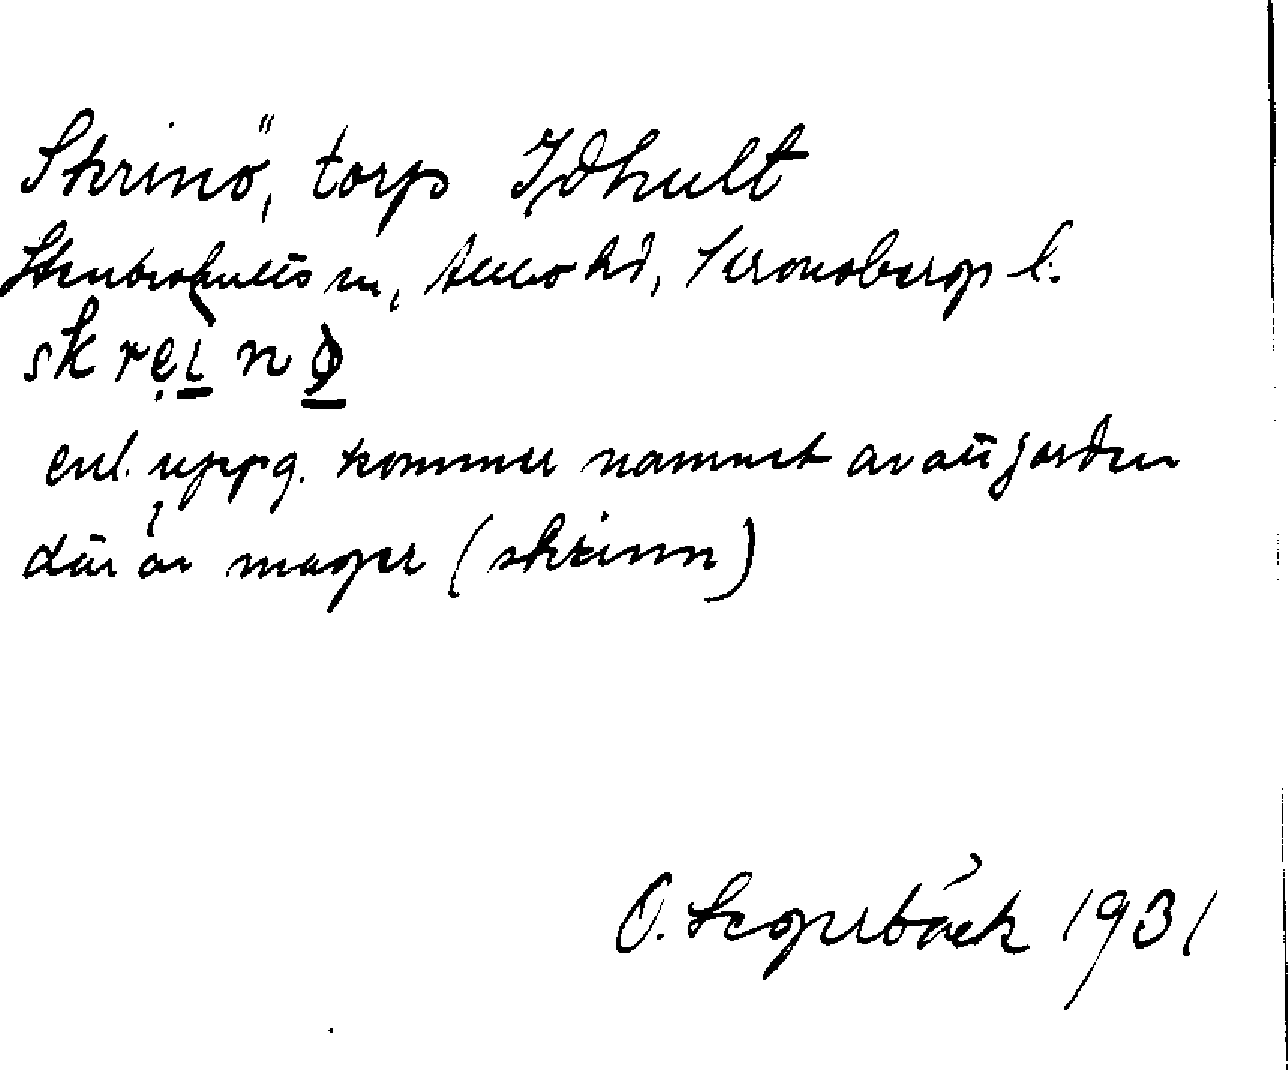 Skrinö, torp Idhult
Stenbrohults sn, Allbo hd, Kronobergs l.
skrẹi̠nø̠
enl. uppg. kommer namnet av att jorden
där är mager (skrinn)
O. Segerbäck 1931